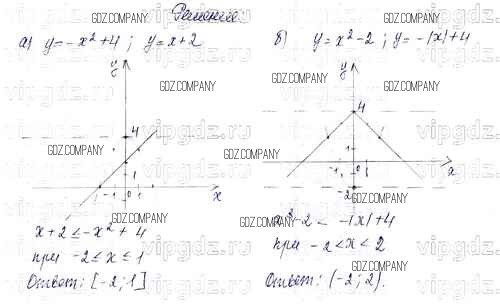 Решение:
а) y = -x² + 4 ; y = x + 2
б) y = x² - 2 ; y = -|x| + 4
GDZ.COMPANY
GDZ.COMPANY
GDZ.COMPANY
vipgdz.ru
vipgdz.ru
y
y
GDZ.COMPANY
GDZ.COMPANY
4
4
vipgdz.ru
vipgdz.ru
GDZ.COMPANY
GDZ.COMPANY
1
1
-1 0 1
x
-1 0 1
x
-2
vipgdz.ru
vipgdz.ru
GDZ.COMPANY
GDZ.COMPANY
x + 2 ≤ -x² + 4
x² - 2 < -|x| + 4
при -2 ≤ x ≤ 1
при -2 < x < 2
vipgdz.ru
vipgdz.ru
Ответ: [-2; 1]
Ответ: (-2; 2).
GDZ.COMPANY
GDZ.COMPANY